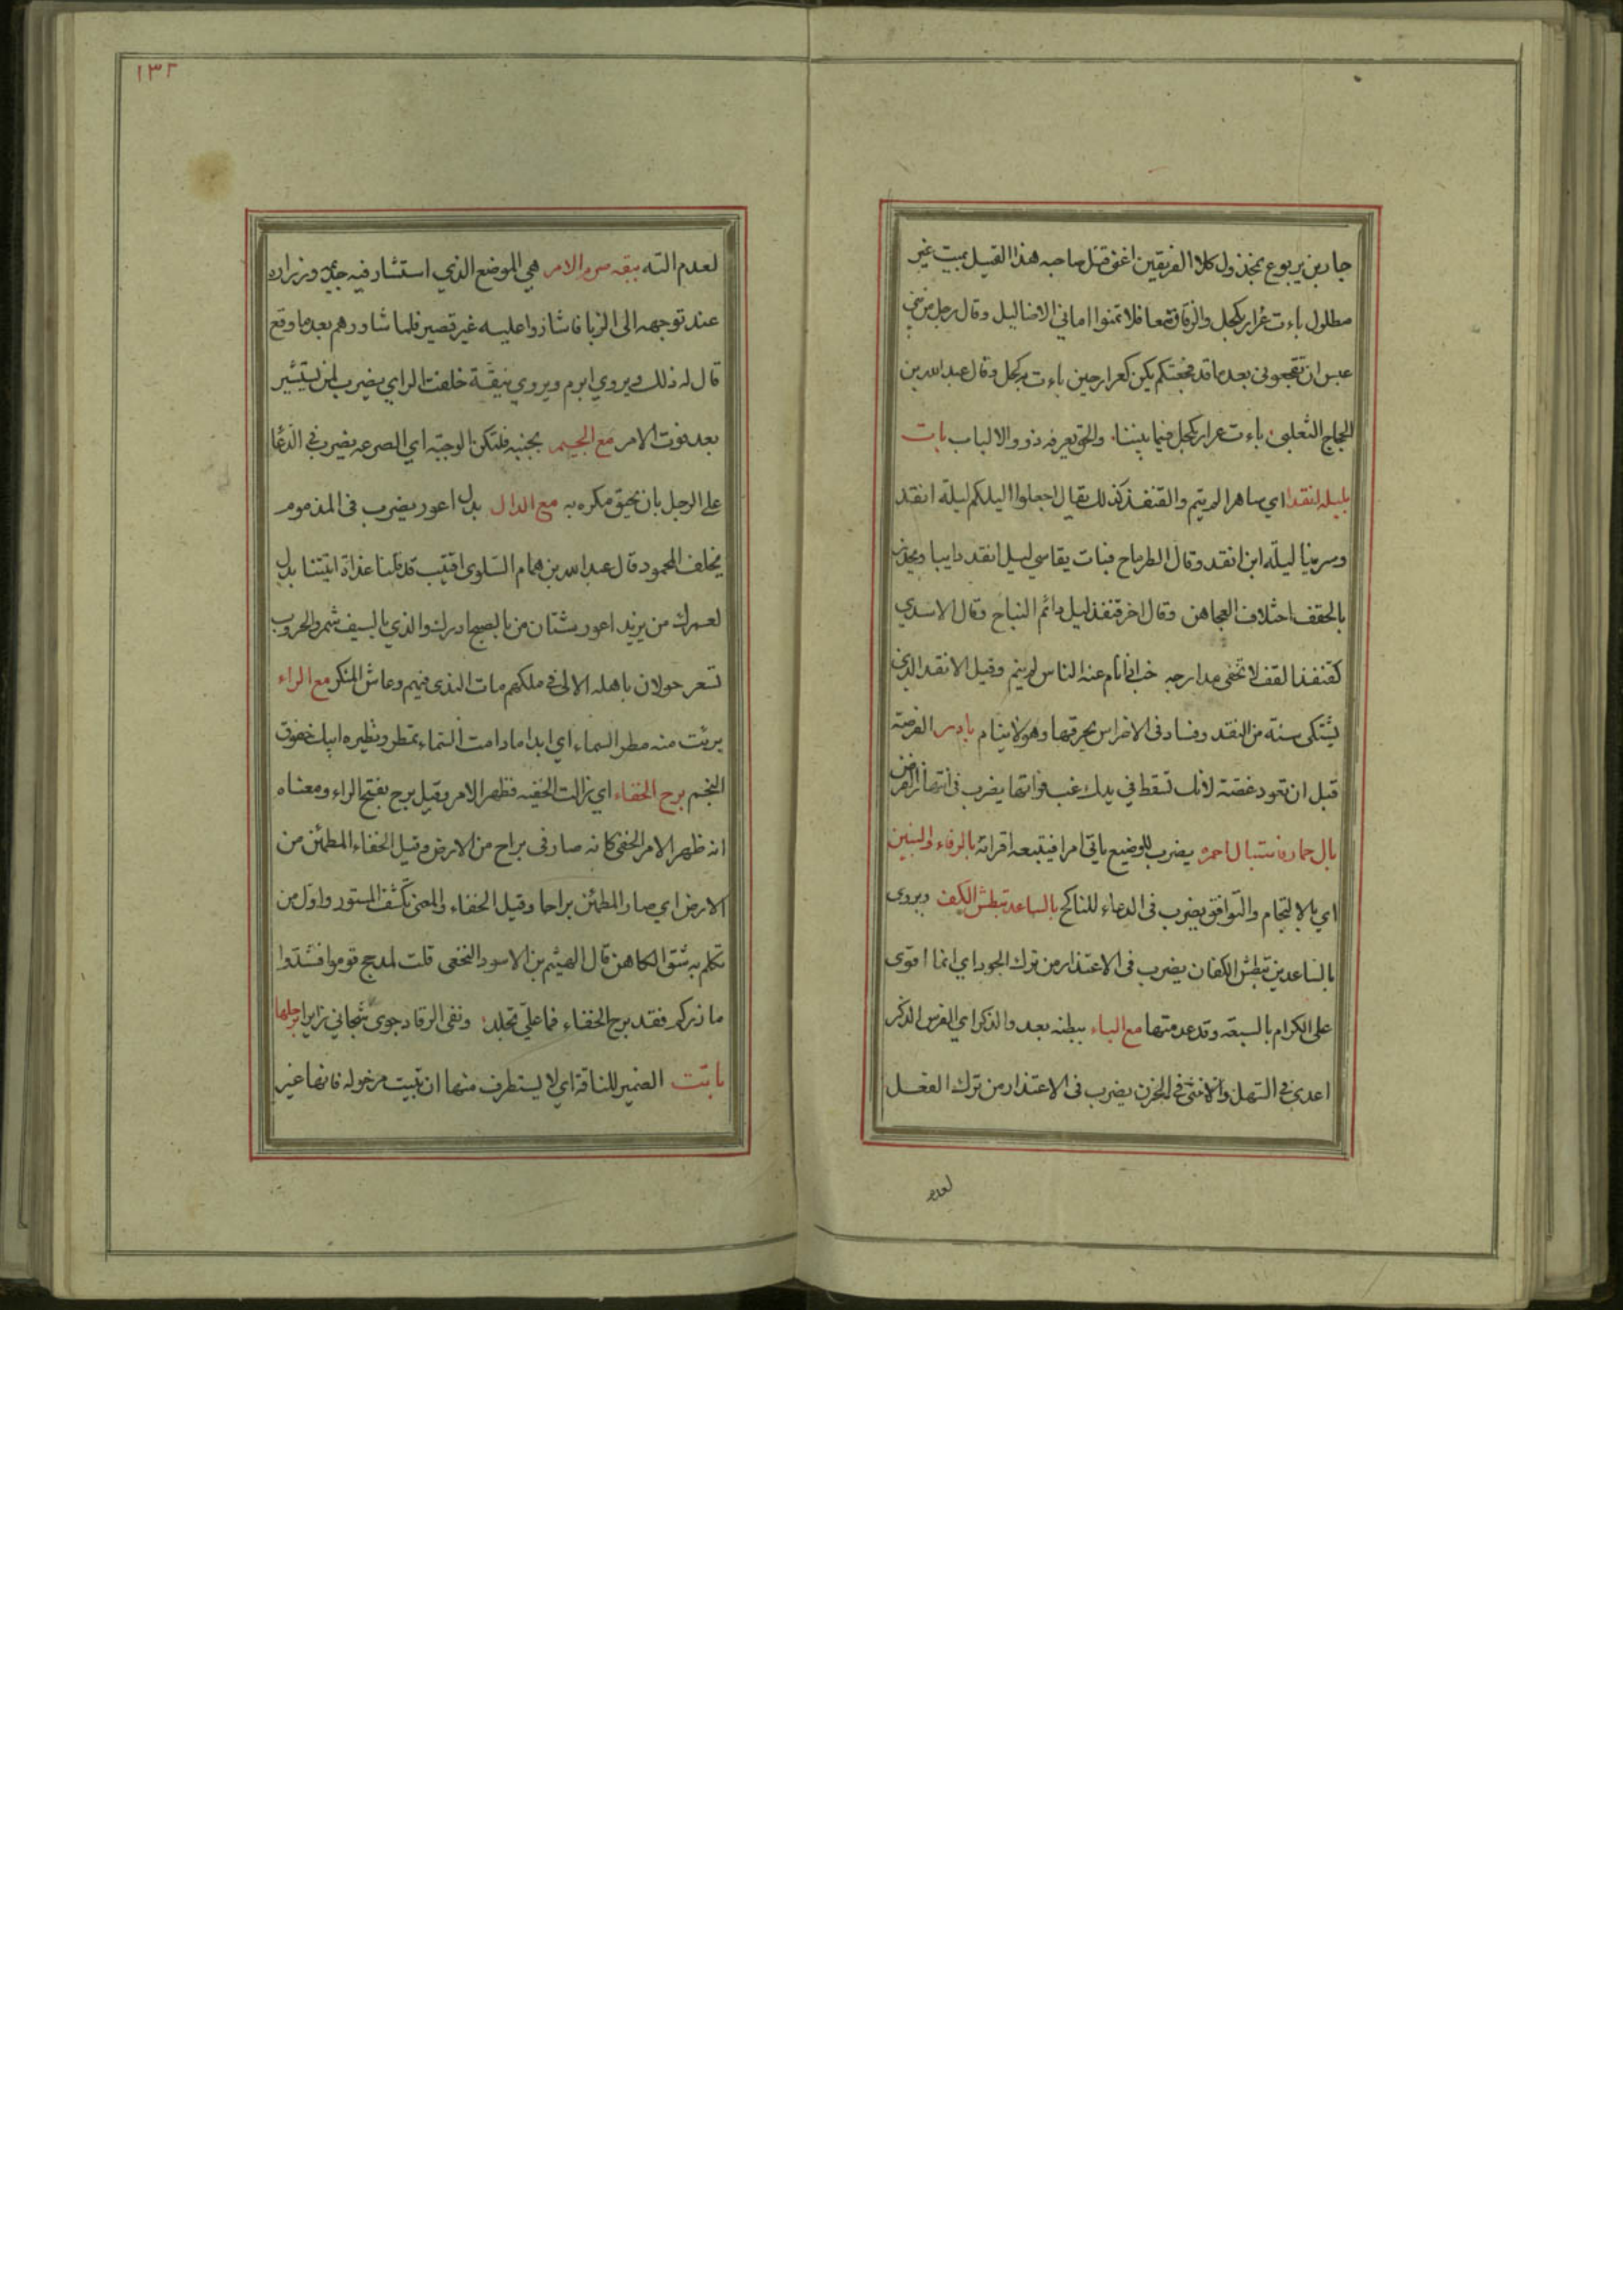 جار بن يربوع بمخذول كلا الفريقين اغنى قتل صاحبه هذا القتيل بميت غير
مطلول باءت عرار بكحل والرفاق معا فلا تمنوا اماني الاضاليل وقال رجل من بني
عبس ان تفجعوني بعدما قد فجعتكم يكن كعرار حين باءت بكحل وقال عبد الله بن
الحجاج الثعلبي باءت عرار بكحل فيما بيننا والحق يعرفه ذوو الالباب بات
بليلة انقد اي ساهرا لم ينم والقنفذ كذلك يقال اجعلوا ليلكم ليلة انقد
وسرينا ليلة ابن انقد وقال الطرماح فبات يقاسي ليل انقد دايبا ويحدر
بالحقف اختلاف العجاهن وقال اخر قنفذ ليل دائم النباح وقال الاسدي
كقنفذ القف لا تخفى مدارجه خب اذا نام عنه الناس لم ينم وقيل الانقد الذي
يشتكي سنه من النقد وفساد في الاضراس يحرقها وهو لا ينام بادر الفرصة
قبل ان تعود غصة لانك تسقط في يدك غب فواتها يضرب في انتهاز الفرص
بال حمار فاستبال احمرة يضرب للوضيع ياتي امرا فيتبعه اقرانه بالرفاء والبنين
اي بالالتحام والتوافق يضرب في الدعاء للناكح بالساعد تبطش الكف ويروى
بالساعدين تبطش الكفان يضرب في الاعتذار من ترك الجود اي انما اقوى
على الكرام بالسعة وقد عدمتها مع الباء ببطنه يعدو الذكر اي الفرس الذكر
اعدى في السهل والانثى في الحزن يضرب في الاعتذار من ترك الفعل
لعدم
١٣٢
لعدم الته ببقه صرم الامر هي الموضع الذي استشار فيه جذيمة وزراءه
عند توجهه الى الزبا فاشاروا عليه غير قصير فلما شاورهم بعد ما وقع
قال له ذلك ويروي ابرم ويروي ببقة خلفت الراي يضرب لمن يستشير
بعد فوت الامر مع الجيم بجنبه فلتكن الوجبة اي الصرعه يضرب في الدعا
على الرجل بان يحيق مكره به مع الدال بدل اعور يضرب في المذموم
يخلف المحمود قال عبد الله بن همام السلوي اقتيب قد قلنا غداة اتيتنا بدل
لعمرك من يزيد اعور شتان من بالصنج ادرك والذي بالسيف شمر والحروب
تسعر حولان باهلة الالى في ملكهم مات الندى فيهم وعاش المنكر مع الراء
برئت منه مطر السماء اي ابدا ما دامت السماء تمطر ونظيره خفوق
النجم برح الخفاء اي زالت الخفيه فظهر الامر وقيل برح بفتح الراء ومعناه
انه ظهر الامر الخفي كانه صار في براح من الارض وقيل الخفاء المطمئن من
الارض اي صار المطمئن براحا وقيل الخفاء والمعنى تكشف المستور واول من
تكلم به شق الكاهن قال الهيثم بن الاسود النخعي قلت لمذحج قوموا فشدوا
ما ذركم فقد برح الخفاء فما على تجلد ونفى الرقاد جوى شجاني برجلها
باتت الضمير للناقة اي لا يستطرف منها ان تبيت فانها غير